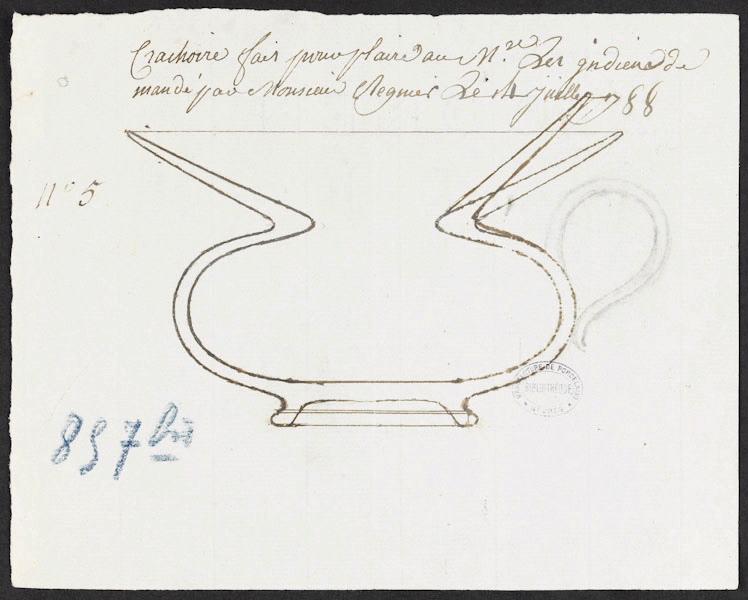 Crachoire fait pour plaire au N.re Les jndiens de
mandé par Monsieur Regnier Le 4 juillet 1788
n° 5
857 bis
MANUFACTURE DE PORCELAINE
BIBLIOTHÈQUE